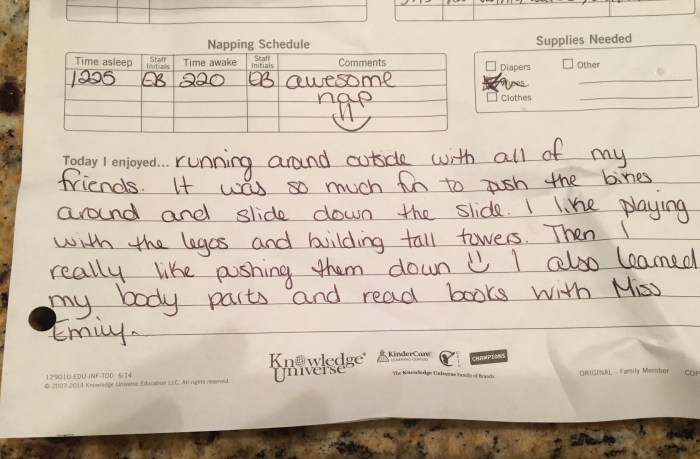 Napping Schedule
Supplies Needed
Time asleep Staff Initials Time awake Staff Initials Comments
1225 EB 220 EB awesome
nap
Diapers Other
Wipes
Clothes
Today I enjoyed... running around outside with all of my
friends. It was so much fun to push the bikes
around and slide down the slide. I like playing
with the legos and building tall towers. Then I
really like pushing them down I also learned
my body parts and read books with Miss
Emily.
Knowledge Universe®
KinderCare LEARNING CENTERS
CHAMPIONS
The Knowledge Universe Family of Brands
129010-EDU-INF-TOD 6/14
© 2007-2014 Knowledge Universe Education LLC. All rights reserved.
ORIGINAL - Family Member COP